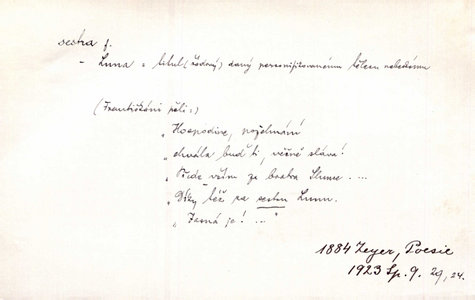 sestra f.
- Luna = titul (řádový) daný personifikovanému tělesu nebeskému
(Františkáni pěli:)
„Hospodine, požehnání
„chvála buď ti, věčná sláva!
„Přede vším za bratra Slunce. ...
„Díky též za sestru Lunu.
„Jasná je! ..."
1884 Zeyer, Poesie
1923 Sp. 9. 29, 24.